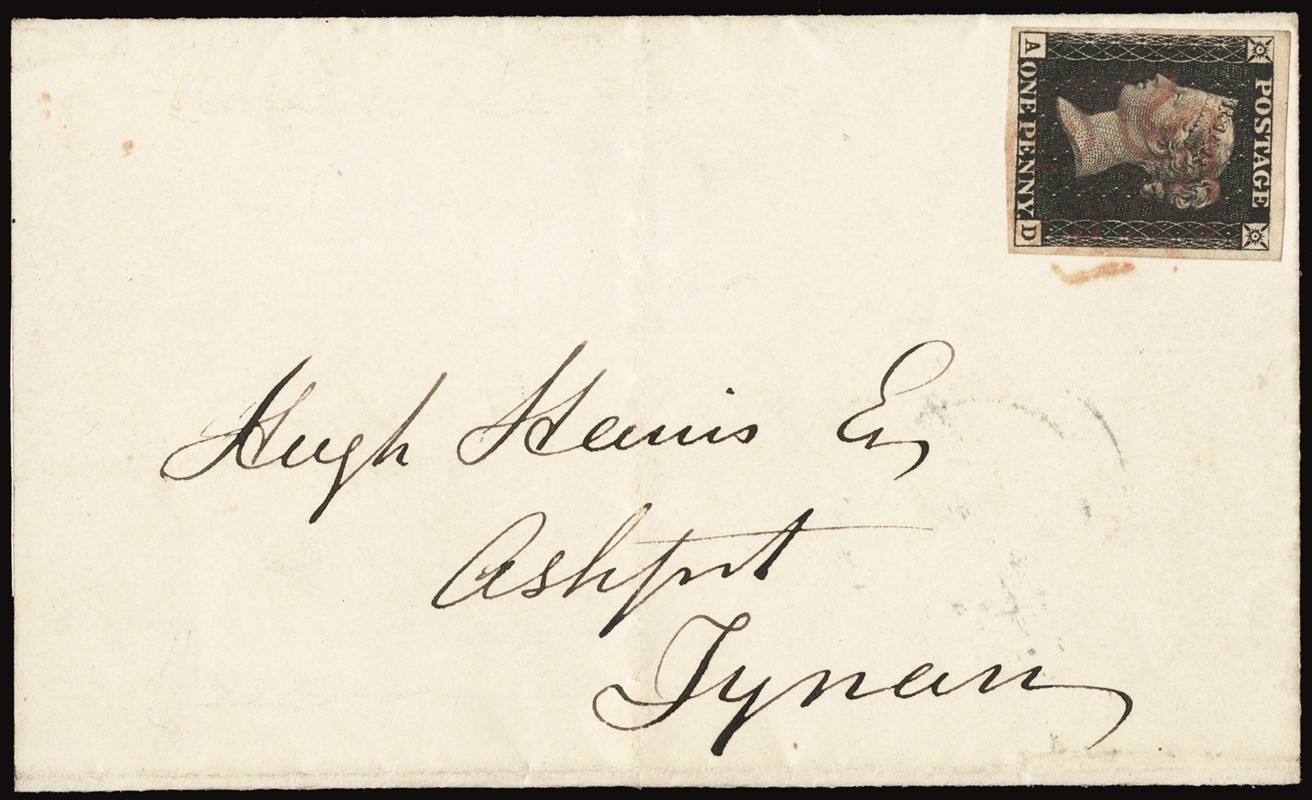 POSTAGE
A ONE PENNY D
Hugh Harris Esq
Ashfort
Tynan